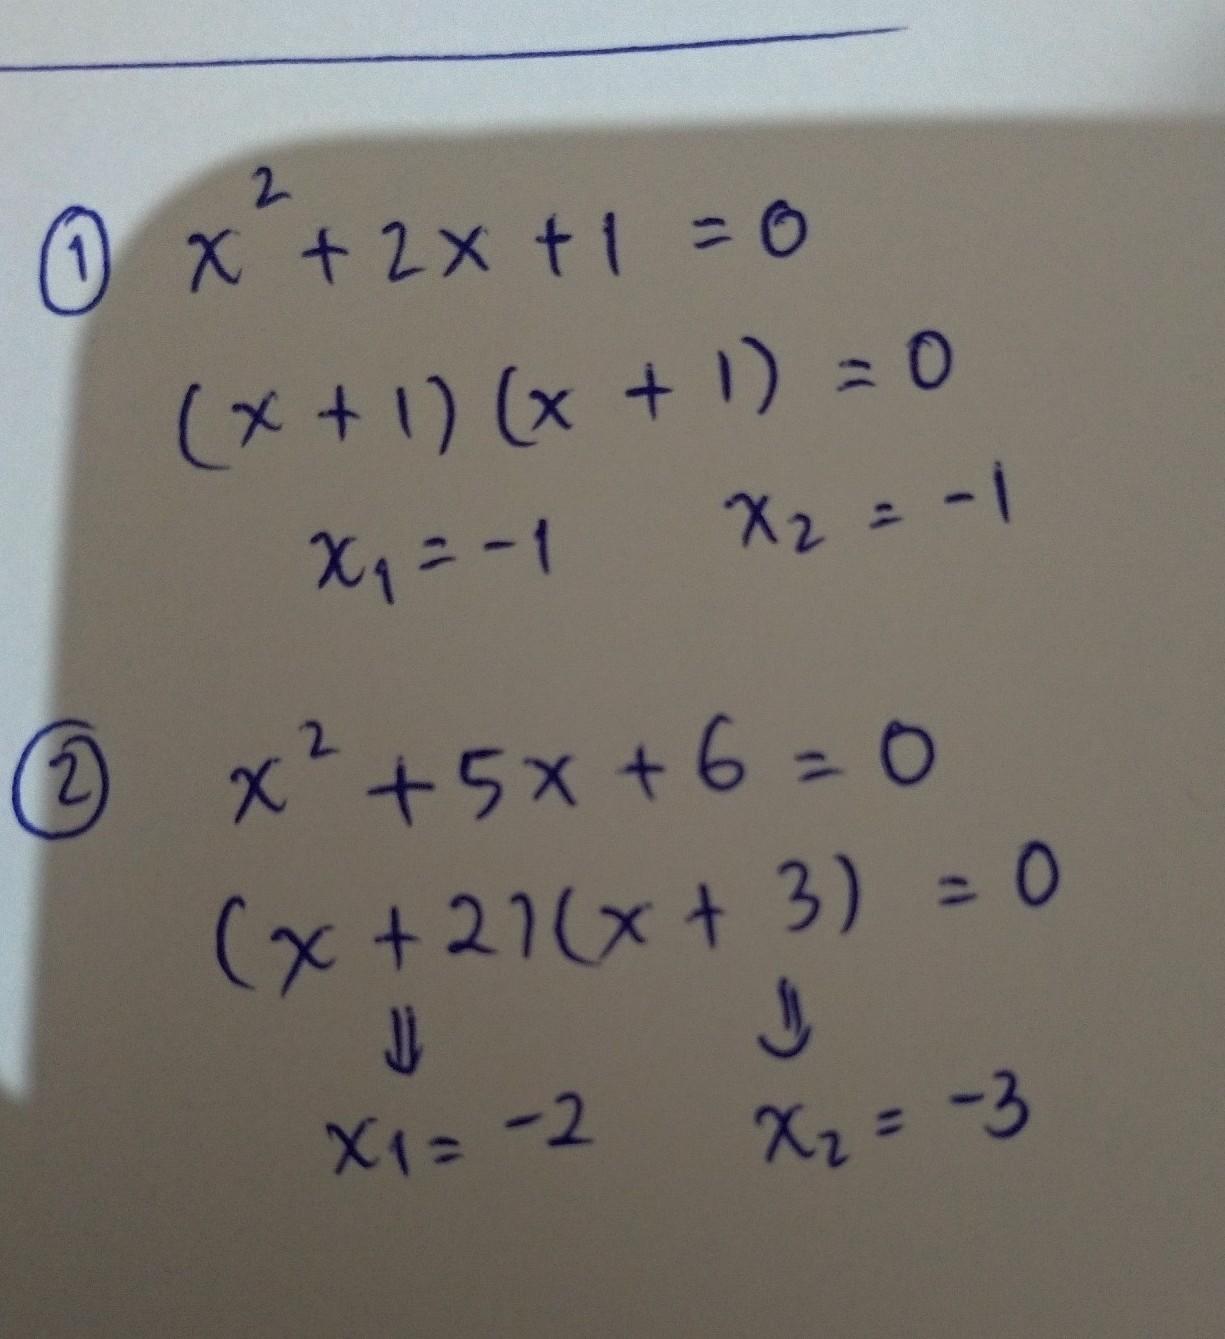 ① x² + 2x + 1 = 0
(x + 1) (x + 1) = 0
x₁ = -1 x₂ = -1
② x² + 5x + 6 = 0
(x + 2)(x + 3) = 0
⇓ ⇓
x₁ = -2 x₂ = -3